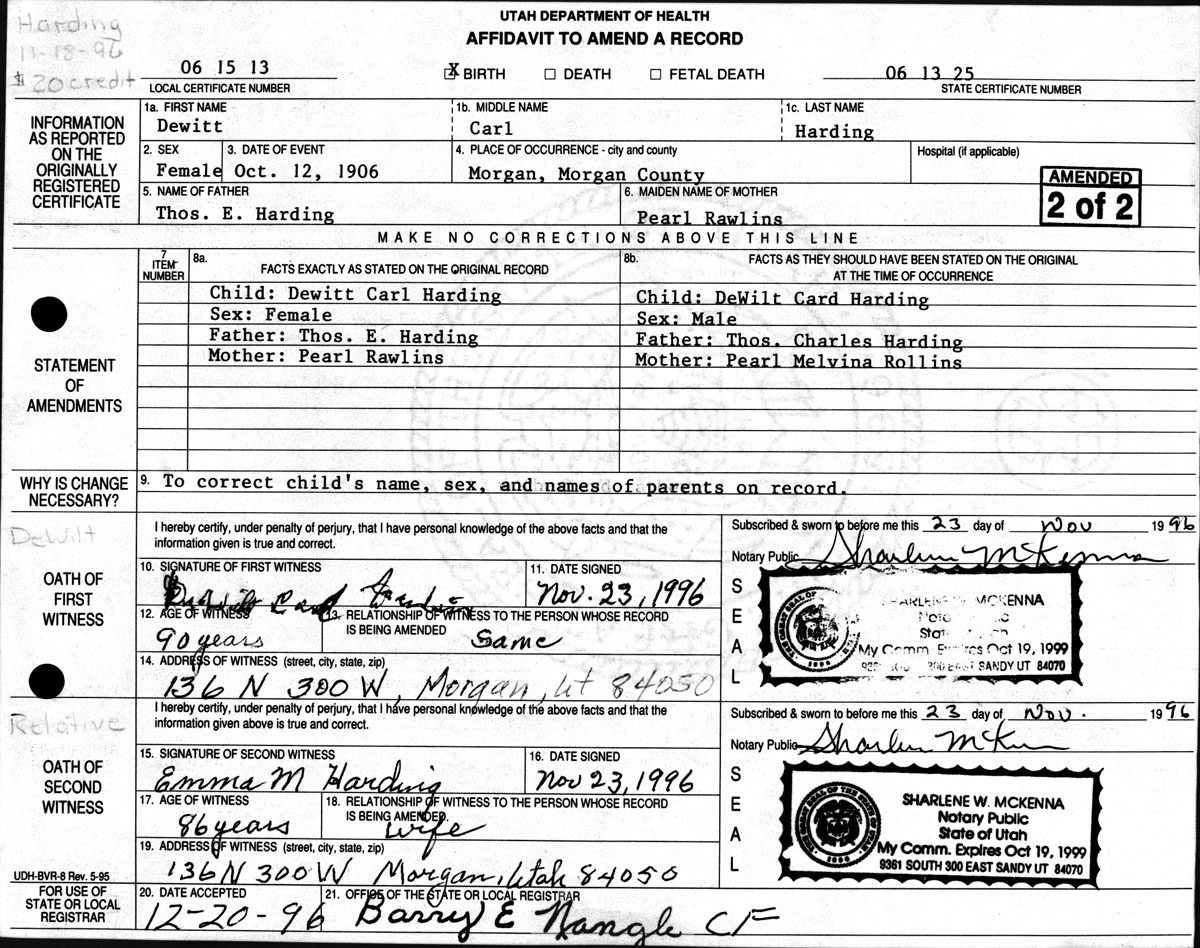 Harding
11-18-96
$20 credit
UTAH DEPARTMENT OF HEALTH
AFFIDAVIT TO AMEND A RECORD
06 15 13
LOCAL CERTIFICATE NUMBER
X BIRTH DEATH FETAL DEATH
06 13 25
STATE CERTIFICATE NUMBER
INFORMATION AS REPORTED ON THE ORIGINALLY REGISTERED CERTIFICATE
1a. FIRST NAME 1b. MIDDLE NAME 1c. LAST NAME
Dewitt Carl Harding
2. SEX 3. DATE OF EVENT 4. PLACE OF OCCURRENCE - city and county Hospital (if applicable)
Female Oct. 12, 1906 Morgan, Morgan County
AMENDED
2 of 2
5. NAME OF FATHER 6. MAIDEN NAME OF MOTHER
Thos. E. Harding Pearl Rawlins
MAKE NO CORRECTIONS ABOVE THIS LINE
STATEMENT OF AMENDMENTS
7 ITEM NUMBER
8a. FACTS EXACTLY AS STATED ON THE ORIGINAL RECORD
8b. FACTS AS THEY SHOULD HAVE BEEN STATED ON THE ORIGINAL AT THE TIME OF OCCURRENCE
Child: Dewitt Carl Harding Child: DeWilt Card Harding
Sex: Female Sex: Male
Father: Thos. E. Harding Father: Thos. Charles Harding
Mother: Pearl Rawlins Mother: Pearl Melvina Rollins
WHY IS CHANGE NECESSARY?
9. To correct child's name, sex, and names of parents on record.
DeWilt
OATH OF FIRST WITNESS
I hereby certify, under penalty of perjury, that I have personal knowledge of the above facts and that the
information given is true and correct.
10. SIGNATURE OF FIRST WITNESS 11. DATE SIGNED
Card Nov. 23, 1996
12. AGE OF WITNESS 13. RELATIONSHIP OF WITNESS TO THE PERSON WHOSE RECORD
IS BEING AMENDED
90 years Same
14. ADDRESS OF WITNESS (street, city, state, zip)
136 N 300 W, Morgan, Ut 84050
Subscribed & sworn to before me this 23 day of Nov 1996
Notary Public Sharlene McKenna
SEAL
SHARLENE W. MCKENNA
Notary Public
State of Utah
My Comm. Expires Oct 19, 1999
300 EAST SANDY UT 84070
Relative
OATH OF SECOND WITNESS
I hereby certify, under penalty of perjury, that I have personal knowledge of the above facts and that the
information given above is true and correct.
15. SIGNATURE OF SECOND WITNESS 16. DATE SIGNED
Emma M Harding Nov 23, 1996
17. AGE OF WITNESS 18. RELATIONSHIP OF WITNESS TO THE PERSON WHOSE RECORD
IS BEING AMENDED.
86 years wife
19. ADDRESS OF WITNESS (street, city, state, zip)
136 N 300 W Morgan, Utah 84050
Subscribed & sworn to before me this 23 day of Nov. 1996
Notary Public
SEAL
THE GREAT SEAL OF THE STATE OF UTAH
1896
SHARLENE W. MCKENNA
Notary Public
State of Utah
My Comm. Expires Oct 19, 1999
9361 SOUTH 300 EAST SANDY UT 84070
UDH-BVR-8 Rev. 5-95
FOR USE OF STATE OR LOCAL REGISTRAR
20. DATE ACCEPTED 21. OFFICE OF THE STATE OR LOCAL REGISTRAR
12-20-96 Barry E Nangle CF